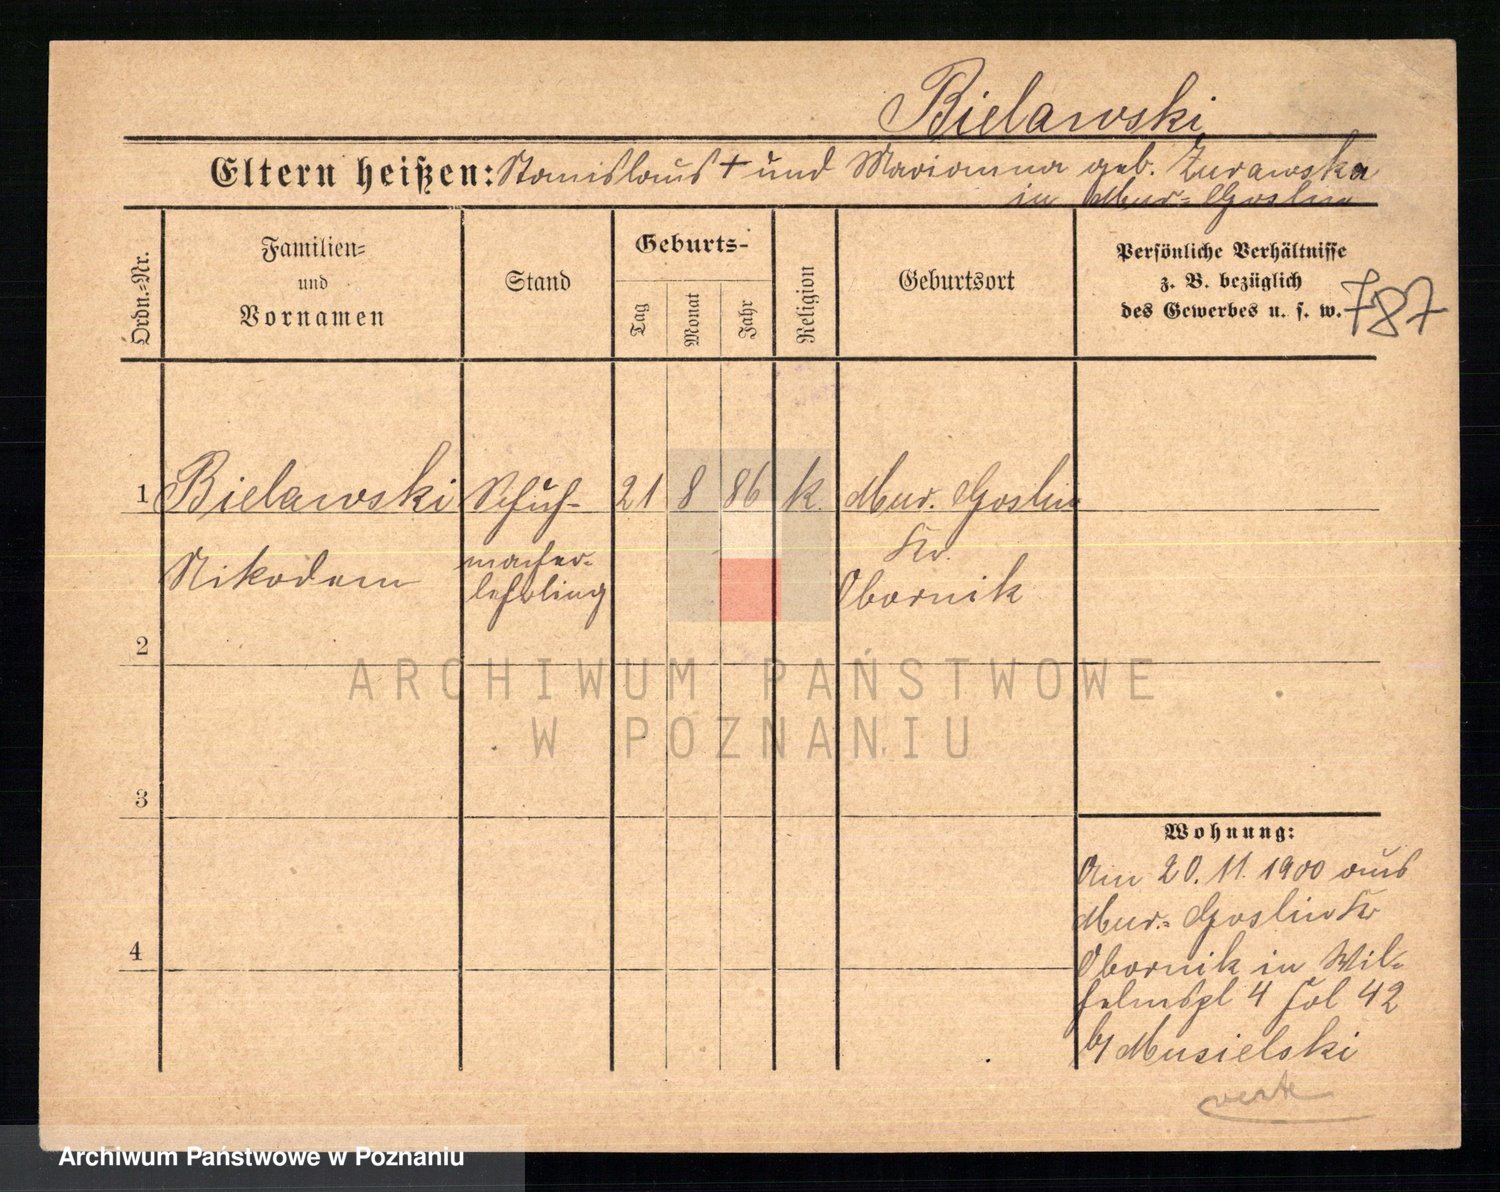 Bielawski
Eltern heißen: Stanislaus + und Marianna geb. Zurawska
in Mur-Goslin
Ordn.-Nr.
Familien-
und
Vornamen
Stand
Geburts-
Tag
Monat
Jahr
Religion
Geburtsort
Persönliche Verhältnisse
z. B. bezüglich
des Gewerbes u. s. w.
787
1 Bielawski Schuh- 21 8 86 k. Mur. Goslin
Kr.
Nikodem macher-
lehrling Obornik
2
ARCHIWUM PAŃSTWOWE
W POZNANIU
3
Wohnung:
Am 20.11.1900 aus
Mur.- Goslin Kr
4 Obornik in Wil-
helmspl 4 Fol 42
b/ Musielski
verte
Archiwum Państwowe w Poznaniu